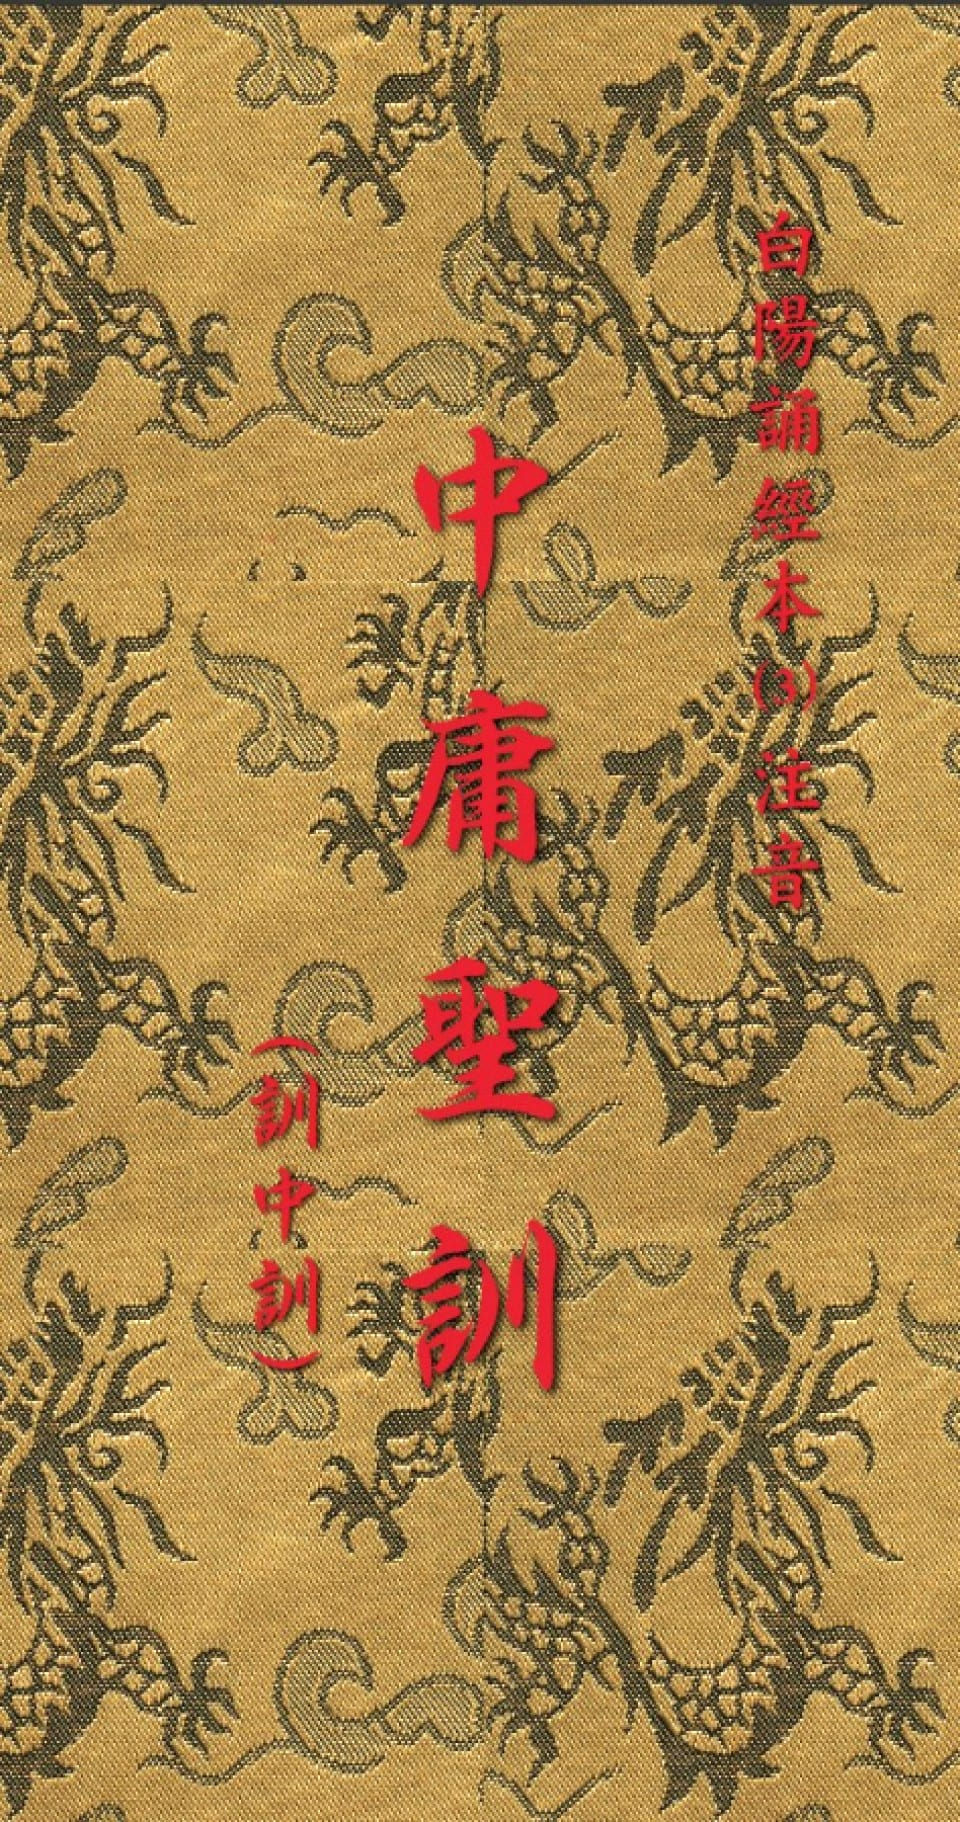 白陽誦經本(3)注音
中庸聖訓
(訓中訓)